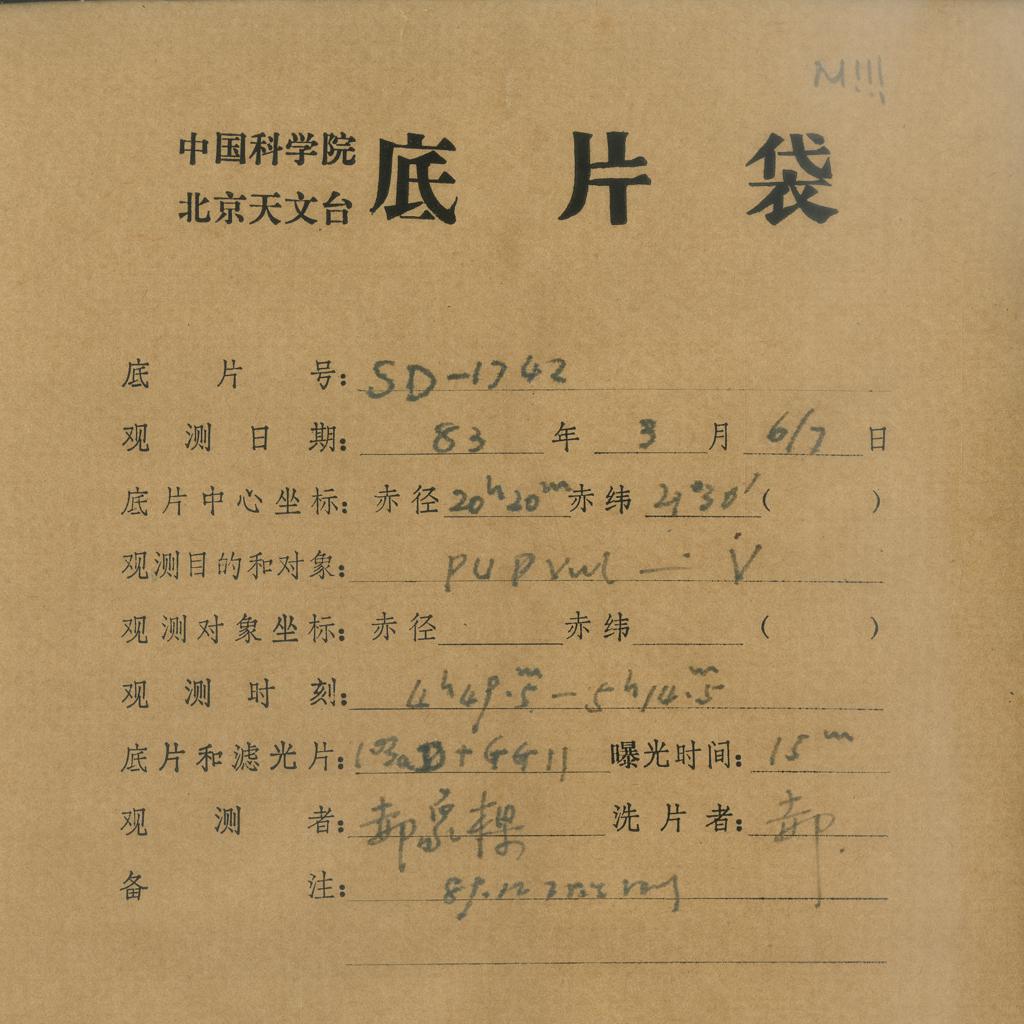 M!!!
中国科学院
北京天文台
底片袋
底片号: SD-1742
观测日期: 83年 3月 6/7日
底片中心坐标: 赤径 20h20m 赤纬 21°30′ ( )
观测目的和对象: PU P Vul — V
观测对象坐标: 赤径 赤纬 ( )
观测时刻: 4h49.m5 — 5h14.m5
底片和滤光片: 103aD+GG11 曝光时间: 15m
观测者: 郝象樑 洗片者: 郝
备注: 89.12